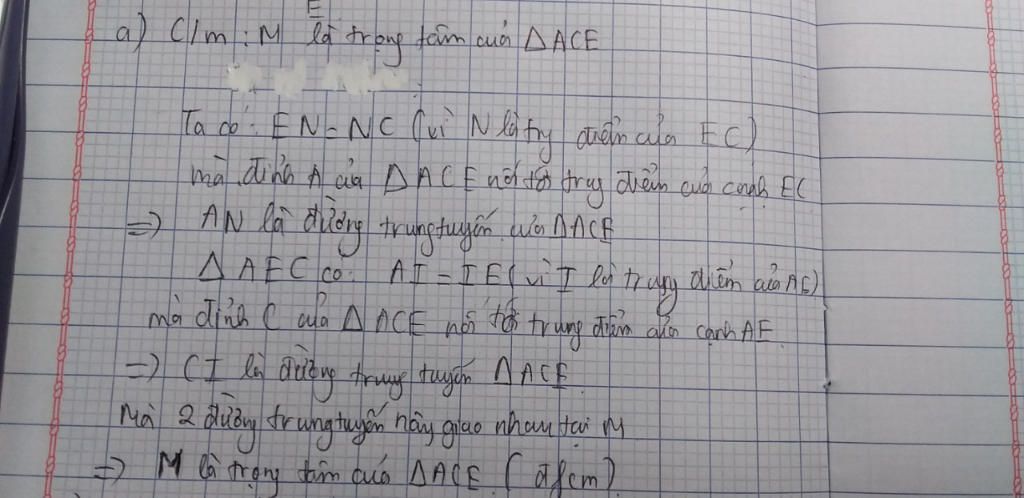 E
a) C/m : M là trọng tâm của ΔACE
Ta có : EN = NC (vì N là trg điểm của EC)
mà đỉnh A của ΔACE nối tới trug điểm của cạnh EC
=> AN là đường trung tuyến của ΔACE
ΔAEC có : AI = IE (vì I là trung điểm của AE)
mà đỉnh C của ΔACE nối tới trung điểm của cạnh AE
=> CI là đường trung tuyến ΔACE
Mà 2 đường trung tuyến này giao nhau tại M
=> M là trọng tâm của ΔACE (đfcm)